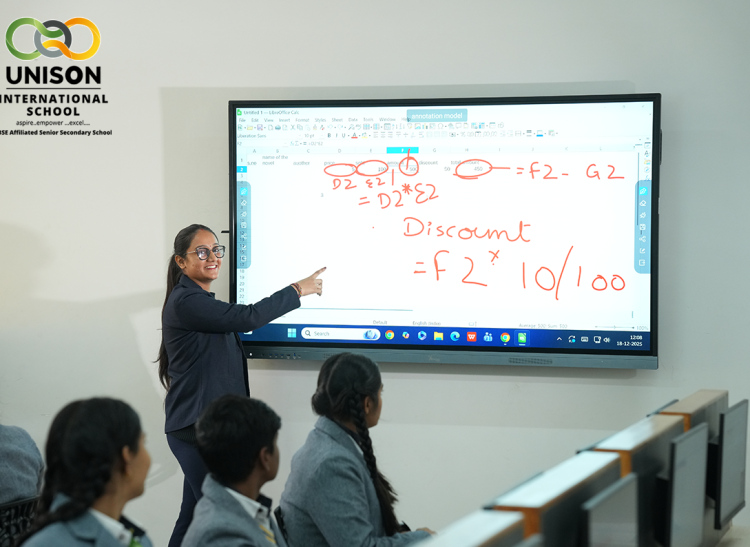 UNISON
INTERNATIONAL
SCHOOL
aspire..empower ...excel....
BSE Affiliated Senior Secondary School
Untitled 1 — LibreOffice Calc
annotation model
File Edit View Insert Format Styles Sheet Data Tools Window Help
name of the
= F2 - G2
D2 E2
= D2*E2
Discount
= F2 * 10/100
Default
English (India)
Search
12:08
18-12-2025